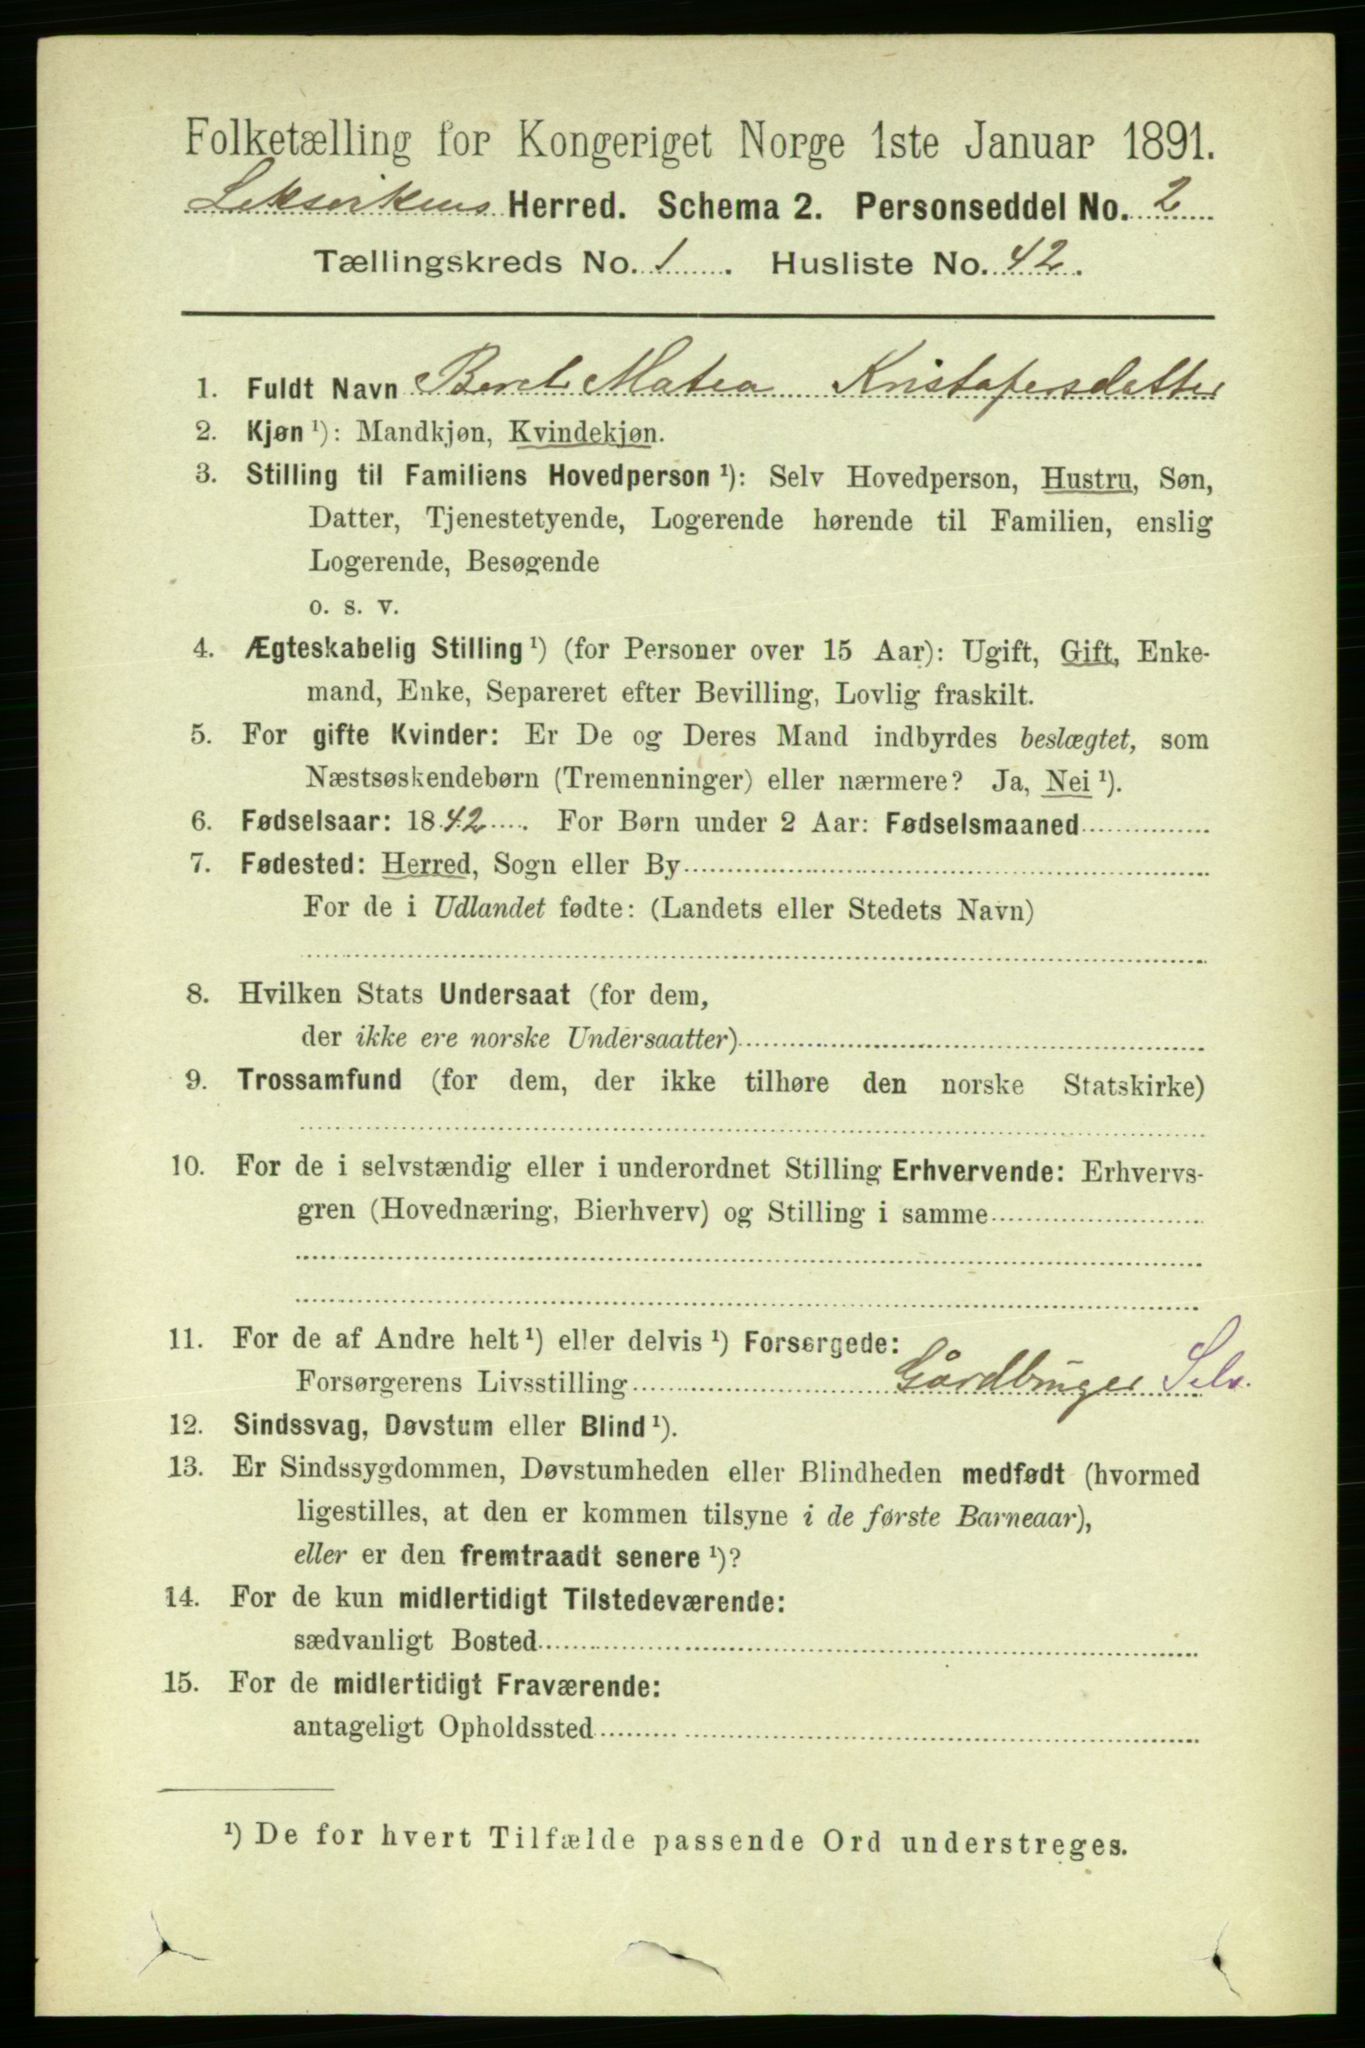 Folketælling for Kongeriget Norge 1ste Januar 1891.
Leksvikens Herred. Schema 2. Personseddel No. 2
Tællingskreds No. 1. Husliste No. 42.
1. Fuldt Navn Beret Matea Kristofersdatter
2. Kjøn ¹): Mandkjøn, Kvindekjøn.
3. Stilling til Familiens Hovedperson ¹): Selv Hovedperson, Hustru, Søn,
Datter, Tjenestetyende, Logerende hørende til Familien, enslig
Logerende, Besøgende
o. s. v.
4. Ægteskabelig Stilling ¹) (for Personer over 15 Aar): Ugift, Gift, Enke-
mand, Enke, Separeret efter Bevilling, Lovlig fraskilt.
5. For gifte Kvinder: Er De og Deres Mand indbyrdes beslægtet, som
Næstsøskendebørn (Tremenninger) eller nærmere? Ja, Nei ¹).
6. Fødselsaar: 1842. For Børn under 2 Aar: Fødselsmaaned
7. Fødested: Herred, Sogn eller By
For de i Udlandet fødte: (Landets eller Stedets Navn)
8. Hvilken Stats Undersaat (for dem,
der ikke ere norske Undersaatter)
9. Trossamfund (for dem, der ikke tilhøre den norske Statskirke)
10. For de i selvstændig eller i underordnet Stilling Erhvervende: Erhvervs-
gren (Hovednæring, Bierhverv) og Stilling i samme
11. For de af Andre helt ¹) eller delvis ¹) Forsørgede:
Forsørgerens Livsstilling Gårdbruger Selv.
12. Sindssvag, Døvstum eller Blind ¹).
13. Er Sindssygdommen, Døvstumheden eller Blindheden medfødt (hvormed
ligestilles, at den er kommen tilsyne i de første Barneaar),
eller er den fremtraadt senere ¹)?
14. For de kun midlertidigt Tilstedeværende:
sædvanligt Bosted
15. For de midlertidigt Fraværende:
antageligt Opholdssted
¹) De for hvert Tilfælde passende Ord understreges.